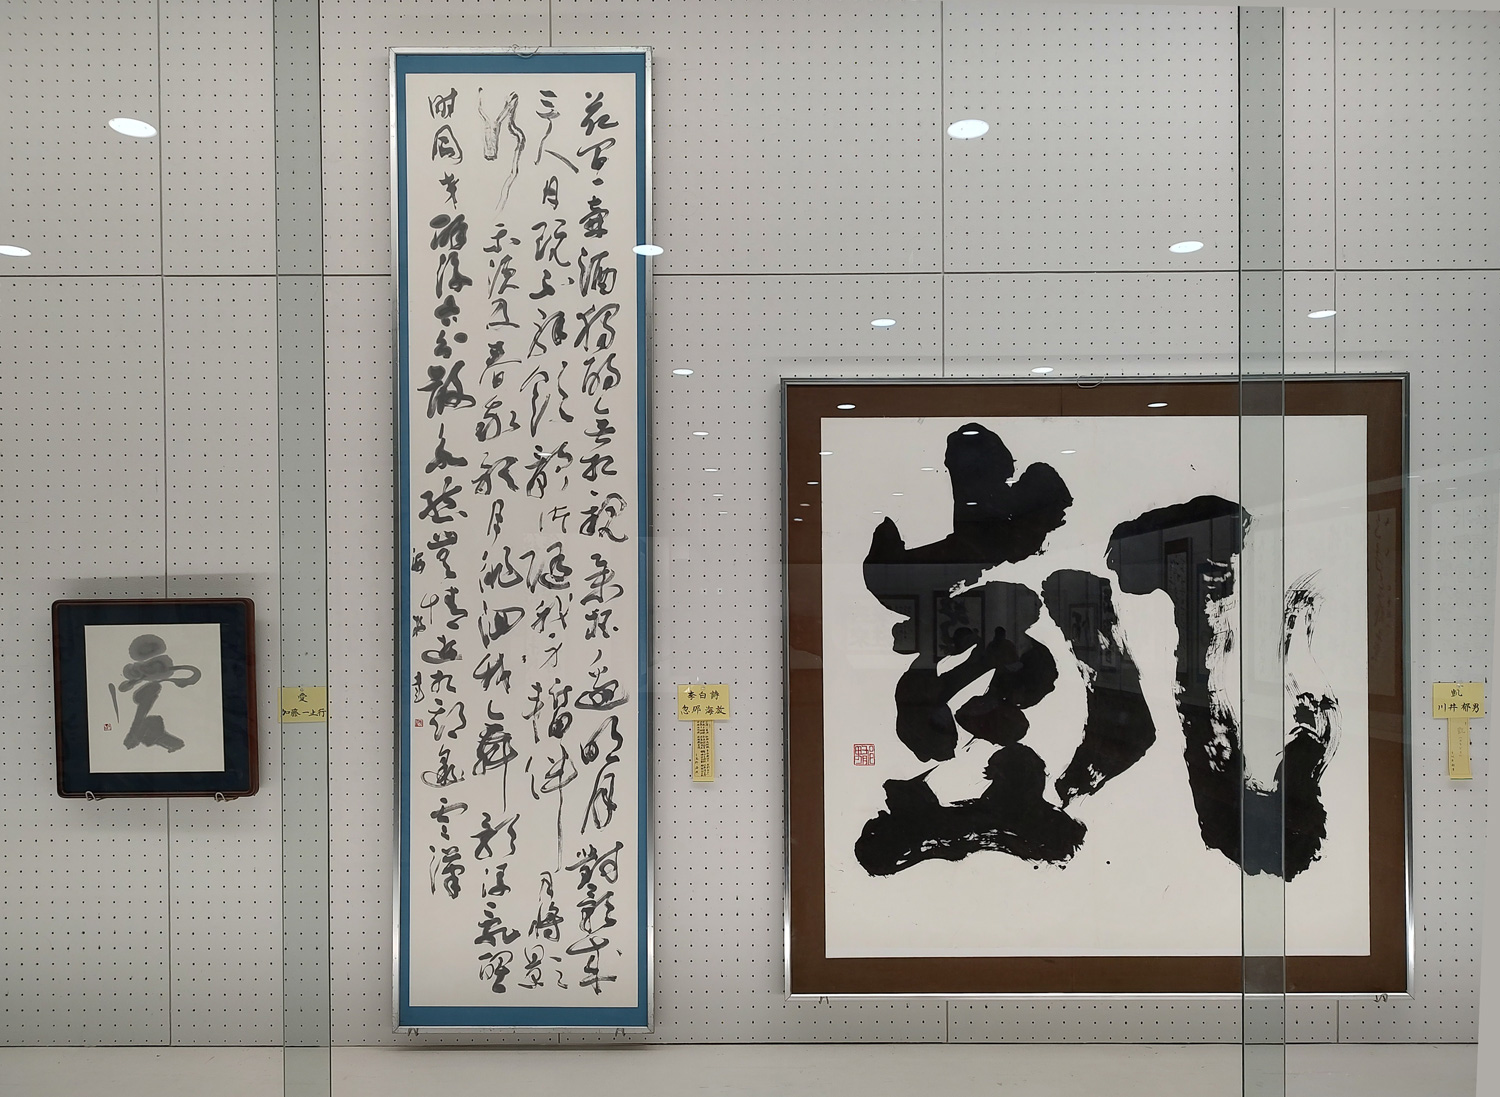 愛
花間一壷酒獨酌無相親擧杯邀明月對影成
三人月既不解飲影徒隨我身暫伴月將影
行楽須及春我歌月徘徊我舞影零乱醒
時同交醉後各分散永結無情遊相期邈雲漢
李白詩
忽那 海放
凱
凱
川井 郁男